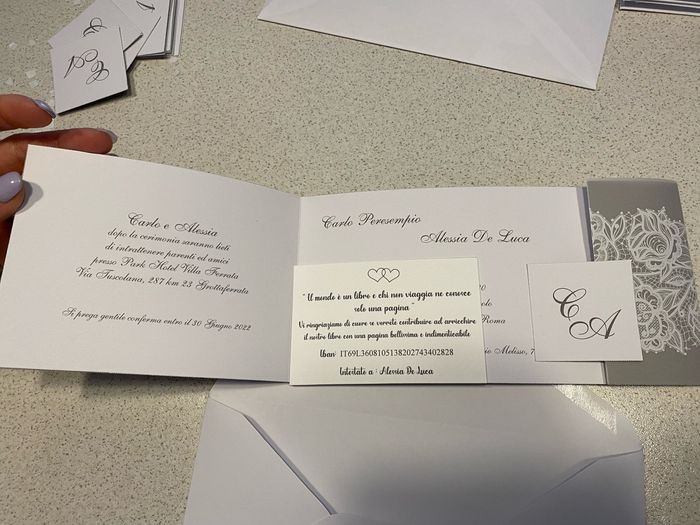 Carlo e Alessia
dopo la cerimonia saranno lieti
di intrattenere parenti ed amici
presso Park Hotel Villa Ferrata
Via Tuscolana, 287 km 23 Grottaferrata
Si prega gentile conferma entro il 30 Giugno 2022
Carlo Peresempio
Alessia De Luca
Roma
Melisso, 7
" Il mondo è un libro e chi non viaggia ne conosce
solo una pagina "
Vi ringraziamo di cuore se vorrete contribuire ad arricchire
il nostro libro con una pagina bellissima e indimenticabile
Iban IT69L3608105138202743402828
Intestato a : Alessia De Luca
C A